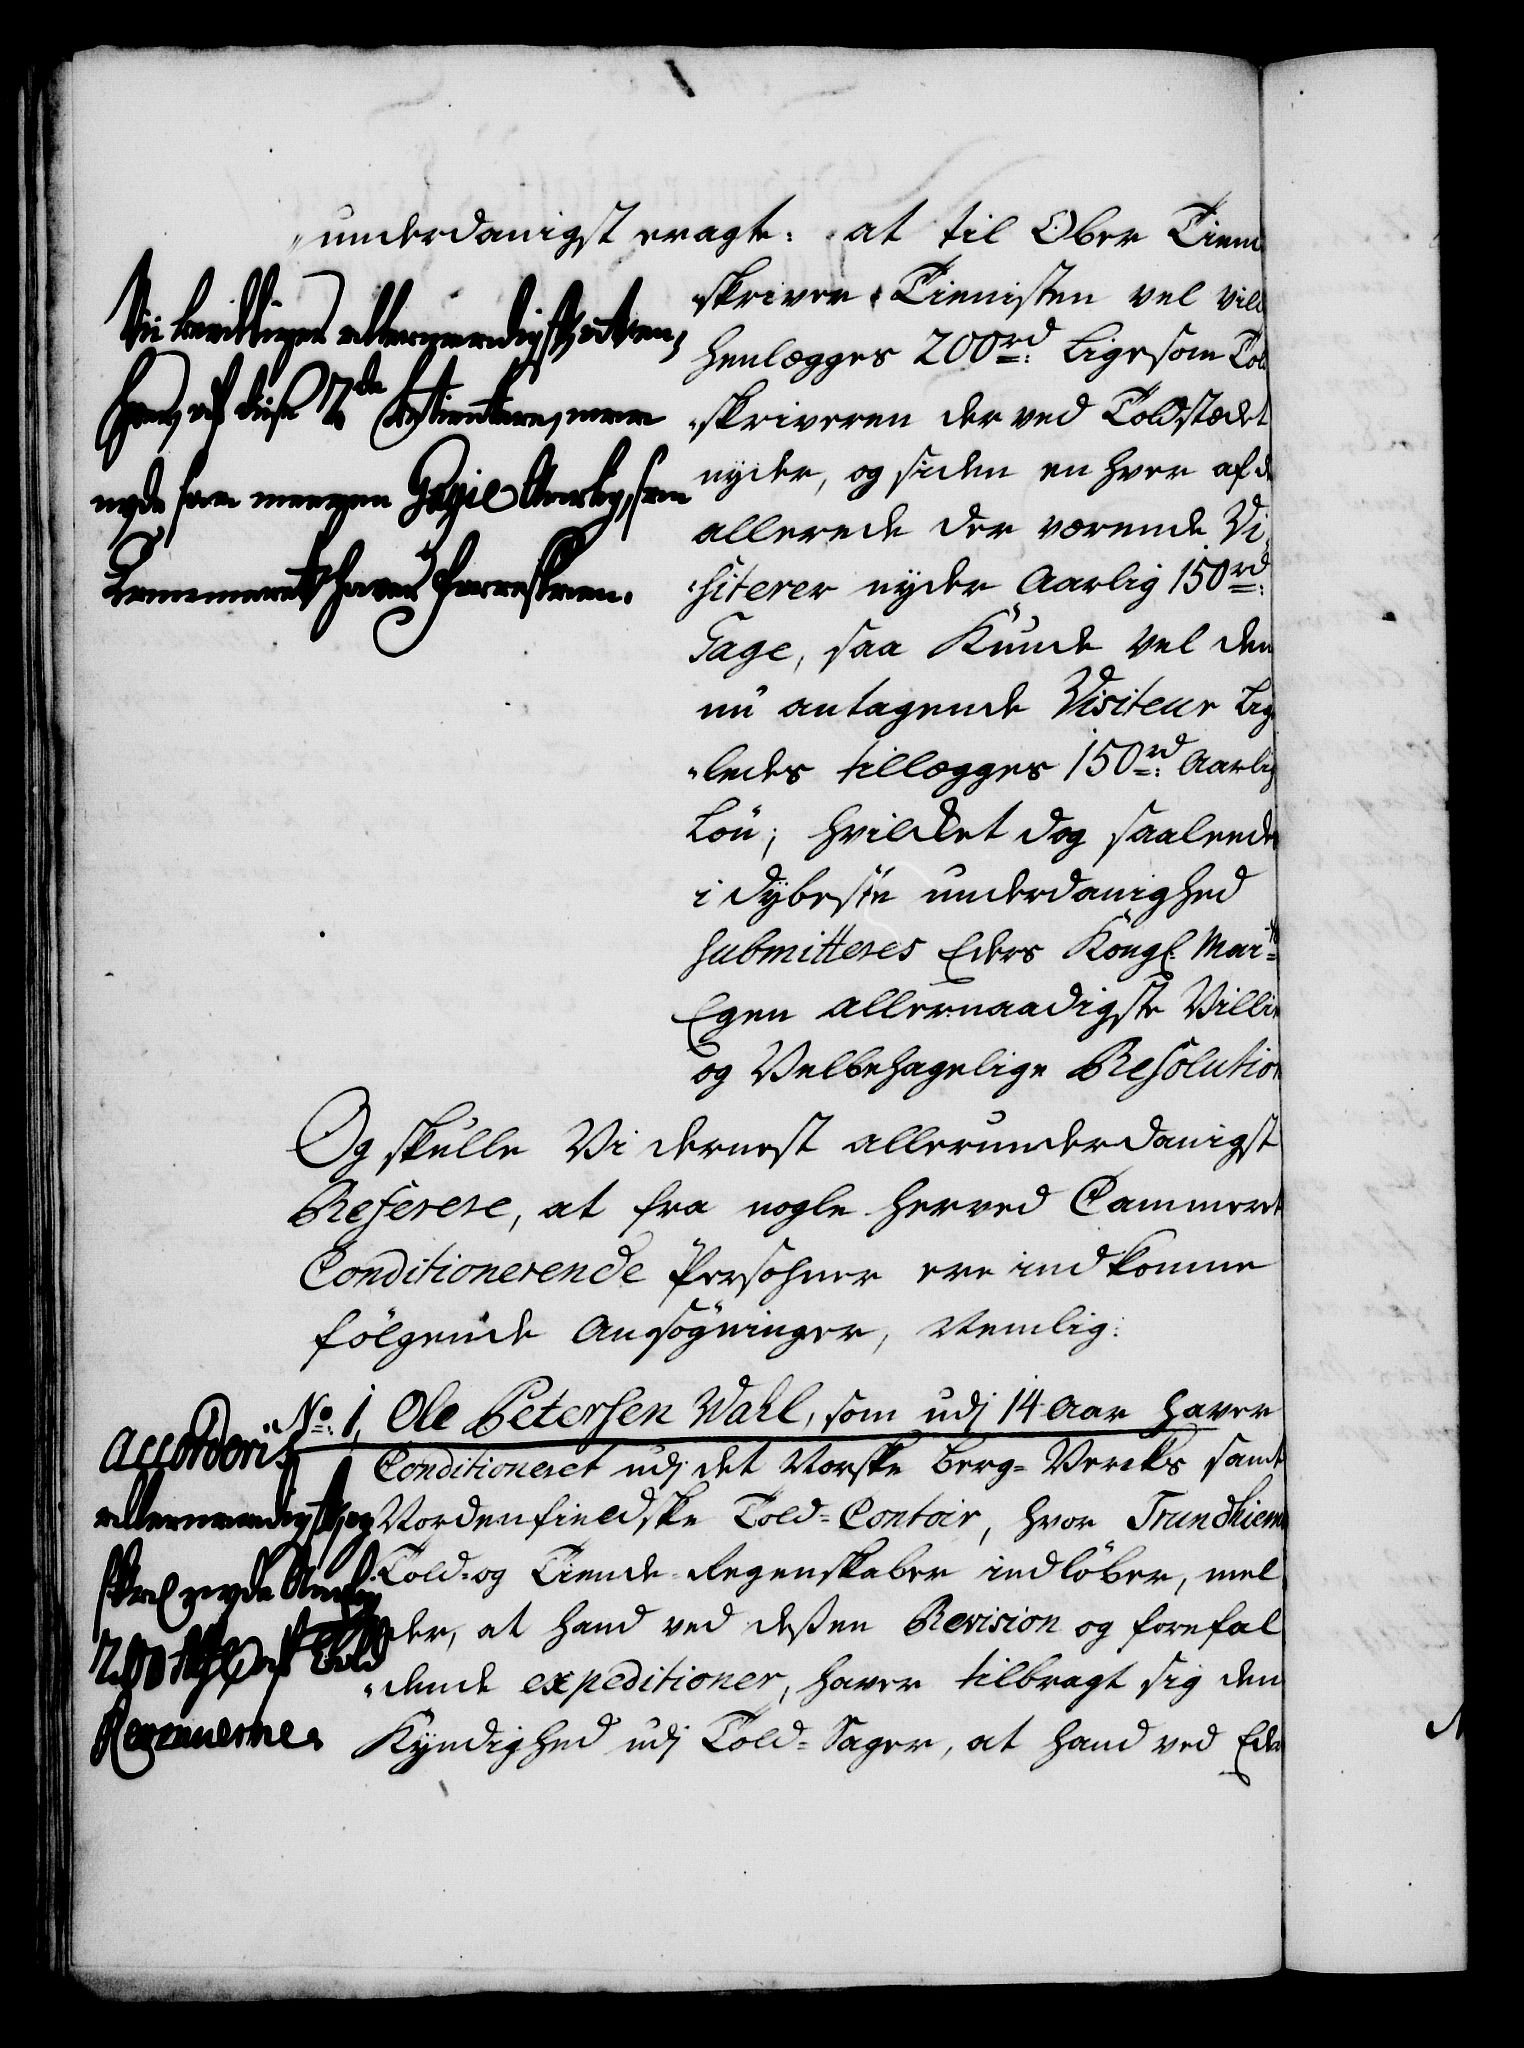 underdanigst eragte: at til Ober Tiend
skriver Tienisten vel vil
henlægges 200 rd: Ligesom Tol
skriveren der ved Toldstædet
nyder, og siden en hver af d
allerede der værende Vi,
siterer nyder Aarlig 150 rd:
Gage, saa Kunde vel den
nu antagende Visiteur Lige
ledes tillægges 150 rd: Aarlig
Løn; hvilket dog saaleedes
i dybeste underdanighed
submitteres Eders Kongl: May:ts
Egen allernaadigste Villie
og Velbehagelige Resolution
Vii bevilliger allernaadigst, at en,
hver af disse
nyde saa meegen Gagie Aarlig, som
Cammeret haver foreslaaen.
Og skulle Vi dernest allerunderdanigst
Referere, at fra nogle herved Cammeret
Conditionerende Persohner ere indkomne
følgende Ansøgninger, Nemlig:
No: 1, Ole Petersen Wahl, som udj 14 Aar haver
Conditioneret udj det Norske Berg-Vercks samt
Nordenfieldske Told-Contoir, hvor Trundhiems
Told- og Tiende-Regenskaber indløber, mel
der, at hand ved deßen Revision og forefal
dende expeditioner, haver tilbragt sig den
Kyndighed udj Told-Sager, at hand ved Eders
Accorderis
allernaadigst, og
skal nyde Aarlig
200 af Told
Revenuerne.